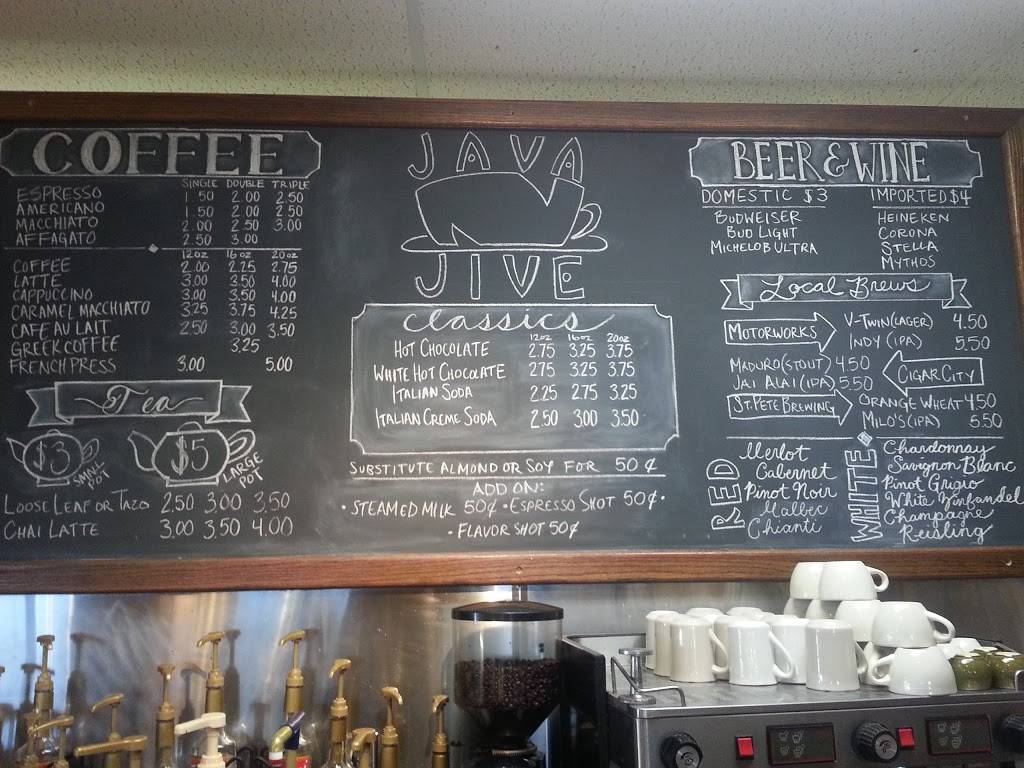 COFFEE
SINGLE DOUBLE TRIPLE
ESPRESSO 1.50 2.00 2.50
AMERICANO 1.50 2.00 2.50
MACCHIATO 2.00 2.50 3.00
AFFAGATO 2.50 3.00
12oz 16oz 20oz
COFFEE 2.00 2.25 2.75
LATTE 3.00 3.50 4.00
CAPPUCCINO 3.00 3.50 4.00
CARAMEL MACCHIATO 3.25 3.75 4.25
CAFE AU LAIT 2.50 3.00 3.50
GREEK COFFEE 3.25
FRENCH PRESS 3.00 5.00
Tea
$3 SMALL POT
$5 LARGE POT
LOOSE LEAF OR TAZO 2.50 3.00 3.50
CHAI LATTE 3.00 3.50 4.00
JAVA
JIVE
classics
12oz 16oz 20oz
HOT CHOCOLATE 2.75 3.25 3.75
WHITE HOT CHOCOLATE 2.75 3.25 3.75
ITALIAN SODA 2.25 2.75 3.25
ITALIAN CREME SODA 2.50 3.00 3.50
SUBSTITUTE ALMOND OR SOY FOR 50¢
ADD ON:
· STEAMED MILK 50¢ · ESPRESSO SHOT 50¢ ·
· FLAVOR SHOT 50¢
BEER & WINE
DOMESTIC $3
BUDWEISER
BUD LIGHT
MICHELOB ULTRA
IMPORTED $4
HEINEKEN
CORONA
STELLA
MYTHOS
Local Brews
MOTORWORKS
V-TWIN (LAGER) 4.50
INDY (IPA) 5.50
MADURO (STOUT) 4.50
JAI ALAI (IPA) 5.50
CIGAR CITY
ST. PETE BREWING
ORANGE WHEAT 4.50
MILO'S (IPA) 5.50
RED
Merlot
Cabernet
Pinot Noir
Malbec
Chianti
WHITE
Chardonnay
Savignon Blanc
Pinot Grigio
White Zinfandel
Champagne
Reisling